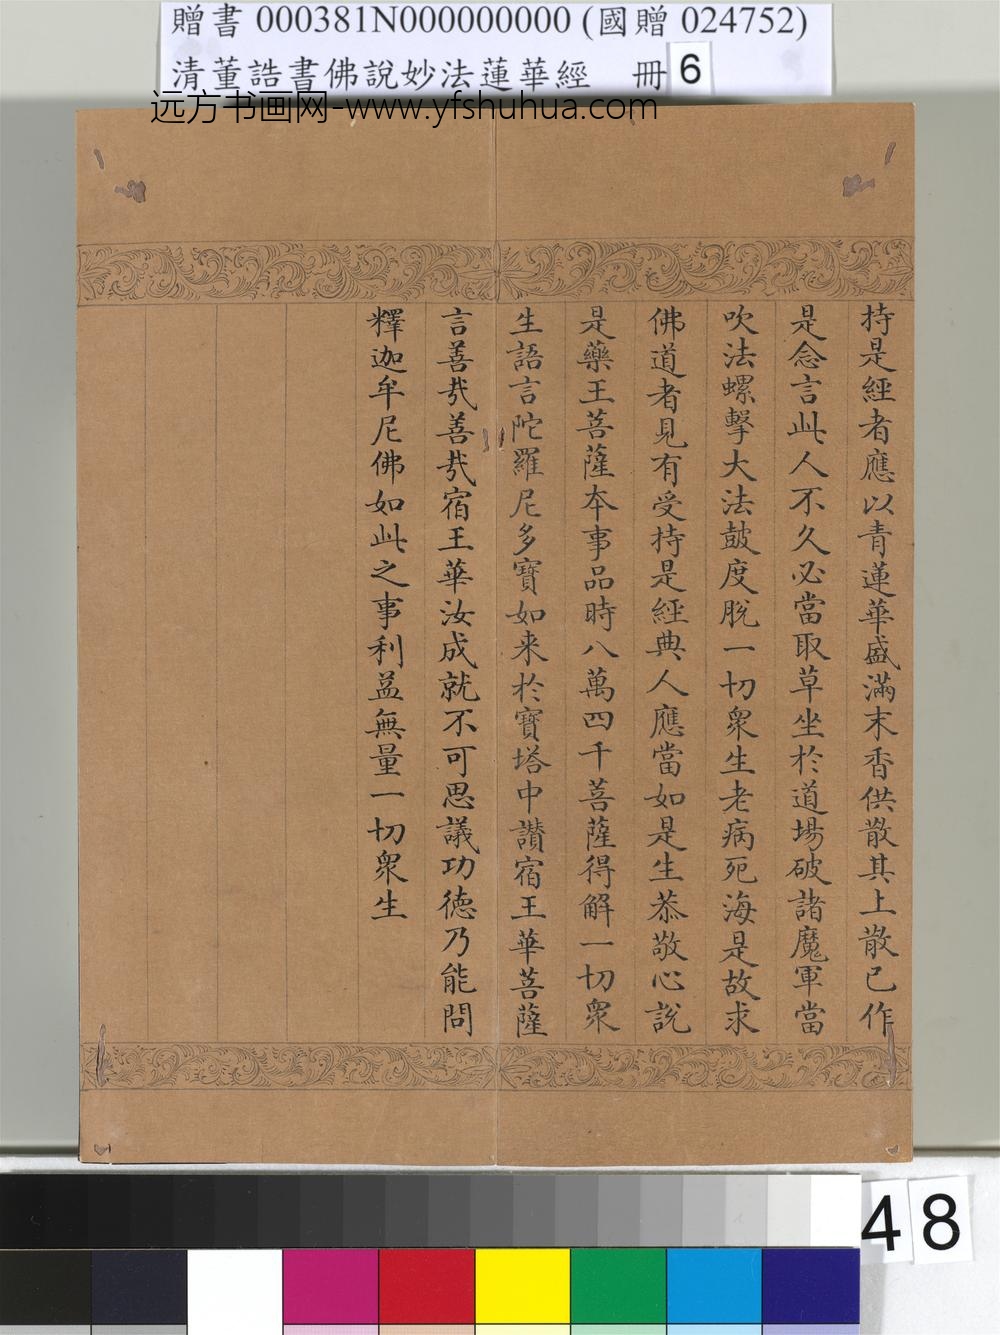 贈書 000381N000000000 (國贈 024752)
清董誥書佛說妙法蓮華經 冊 6
远方书画网-www.yfshuhua.com
持是經者應以青蓮華盛滿末香供散其上散已作
是念言此人不久必當取草坐於道場破諸魔軍當
吹法螺擊大法鼓度脫一切眾生老病死海是故求
佛道者見有受持是經典人應當如是生恭敬心說
是藥王菩薩本事品時八萬四千菩薩得解一切眾
生語言陀羅尼多寶如来於寶塔中讃宿王華菩薩
言善哉善哉宿王華汝成就不可思議功德乃能問
釋迦牟尼佛如此之事利益無量一切眾生
48